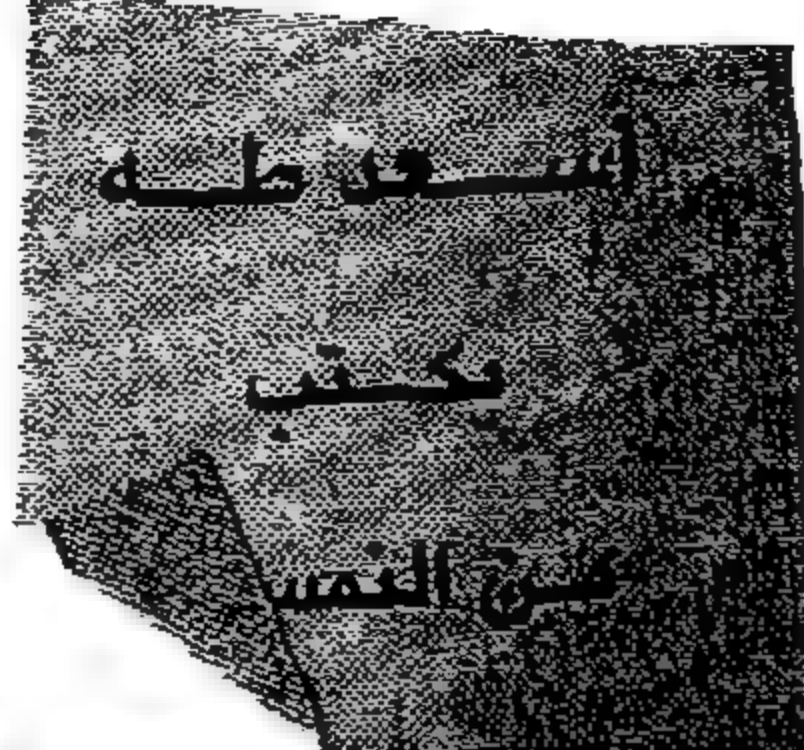 أسعد طه
يكتب
من النمس